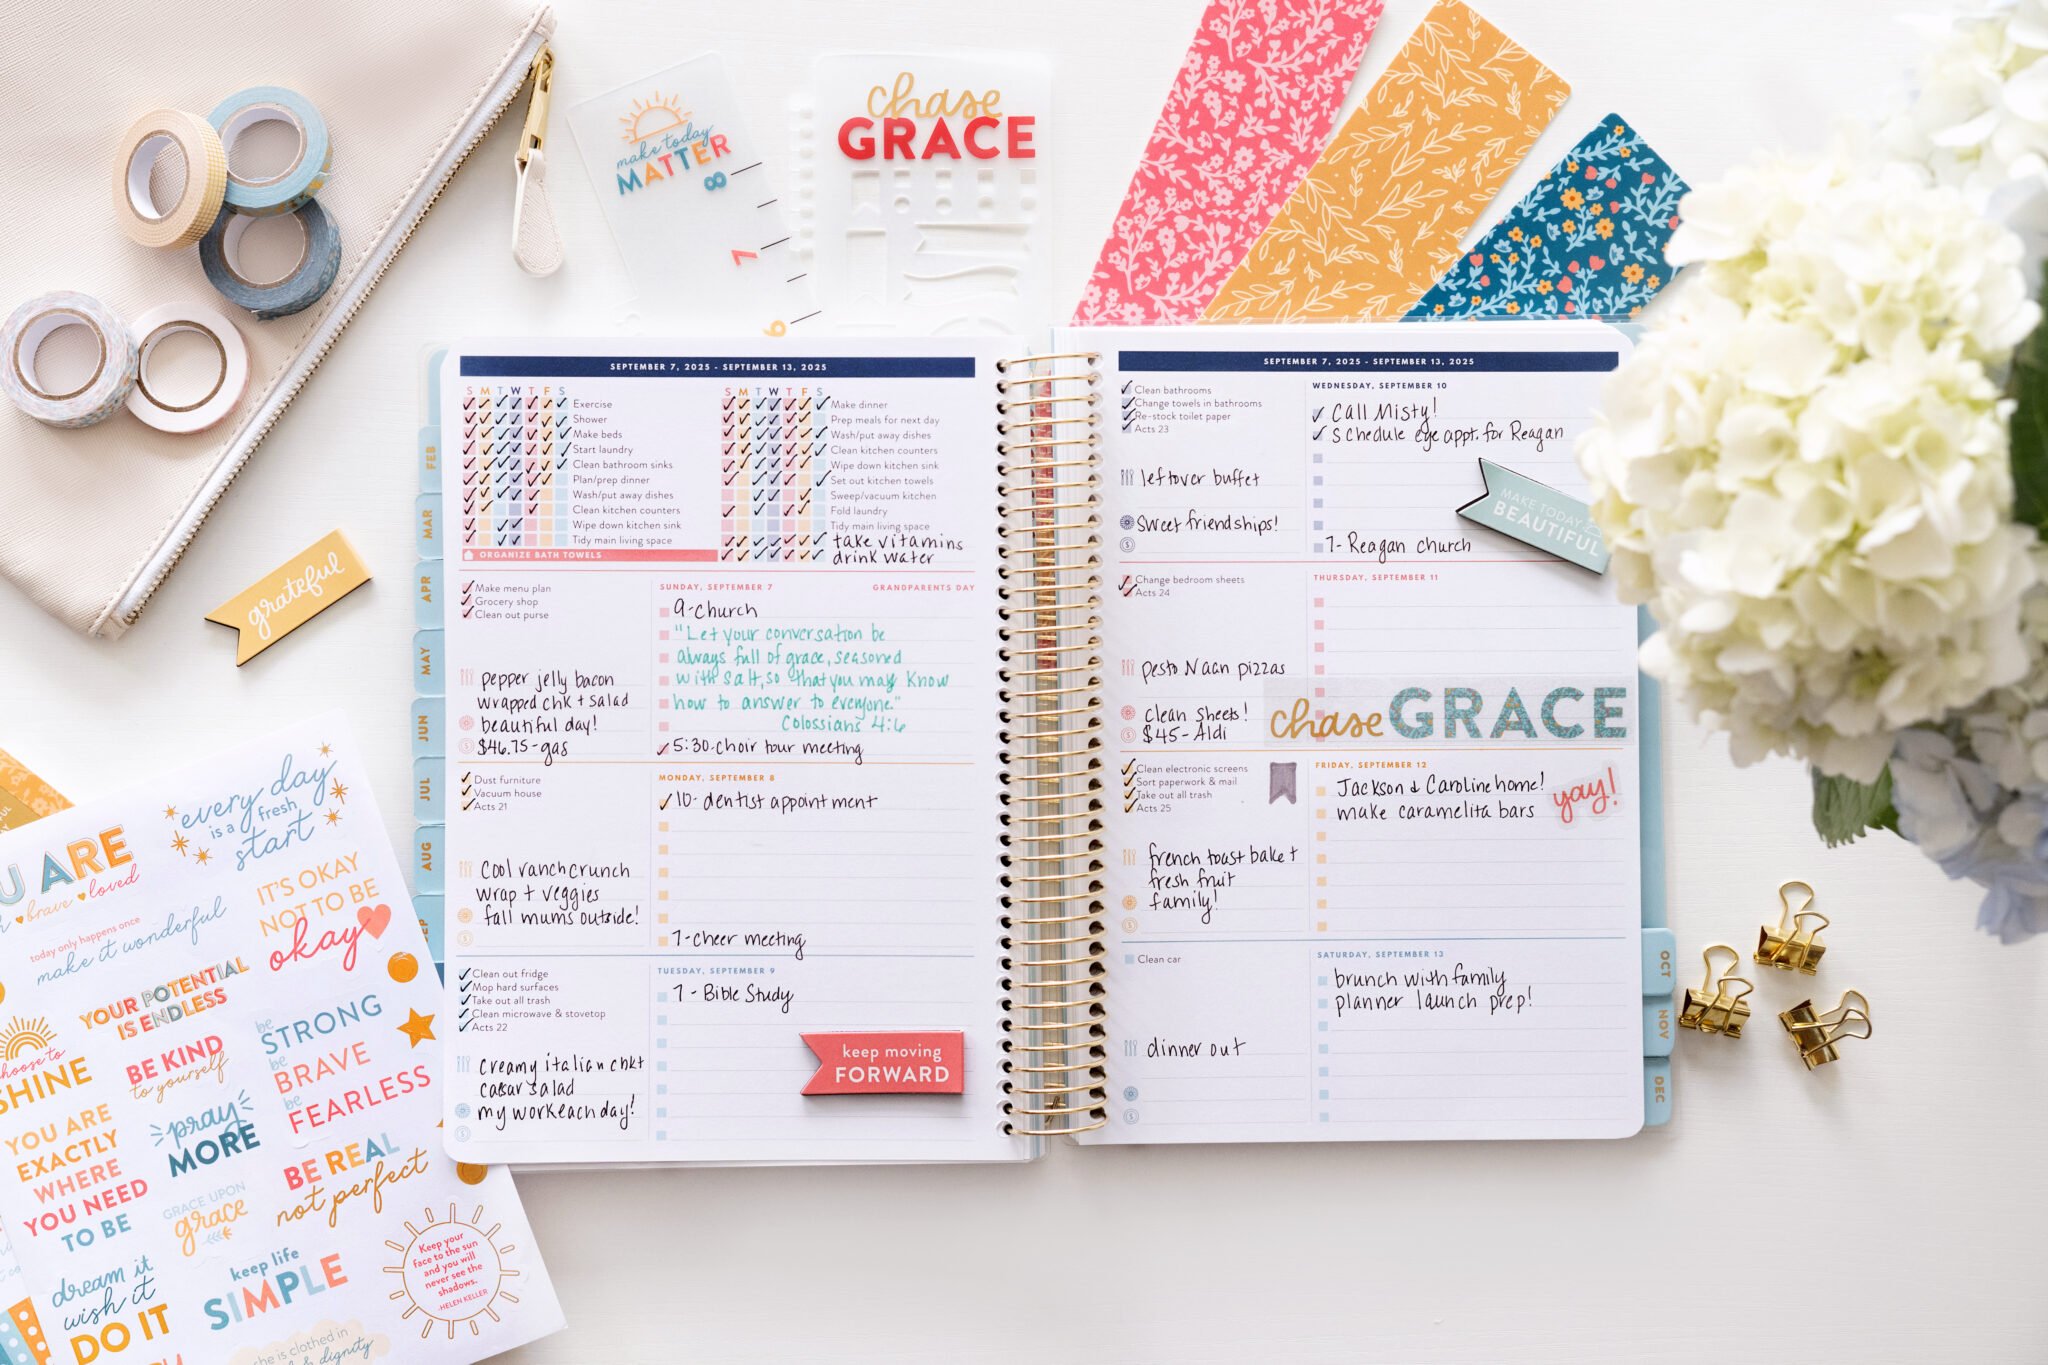 make today
MATTER
8
7
6
chase
GRACE
grateful
FEB
MAR
APR
MAY
JUN
JUL
AUG
SEP
SEPTEMBER 7, 2025 - SEPTEMBER 13, 2025
S M T W T F S
Exercise
Shower
Make beds
Start laundry
Clean bathroom sinks
Plan/prep dinner
Wash/put away dishes
Clean kitchen counters
Wipe down kitchen sink
Tidy main living space
ORGANIZE BATH TOWELS
S M T W T F S
Make dinner
Prep meals for next day
Wash/put away dishes
Clean kitchen counters
Wipe down kitchen sink
Set out kitchen towels
Sweep/vacuum kitchen
Fold laundry
Tidy main living space
take vitamins
drink water
Make menu plan
Grocery shop
Clean out purse
pepper jelly bacon
wrapped chk + salad
beautiful day!
$46.75-gas
SUNDAY, SEPTEMBER 7
GRANDPARENTS DAY
9-church
"Let your conversation be
always full of grace, seasoned
with salt, so that you may know
how to answer to everyone."
Colossians 4:6
5:30-choir tour meeting
Dust furniture
Vacuum house
Acts 21
Cool ranch crunch
wrap + veggies
fall mums outside!
MONDAY, SEPTEMBER 8
10-dentist appointment
7-cheer meeting
Clean out fridge
Mop hard surfaces
Take out all trash
Clean microwave & stovetop
Acts 22
creamy italian chkt
caesar salad
my work each day!
TUESDAY, SEPTEMBER 9
7-Bible Study
keep moving
FORWARD
SEPTEMBER 7, 2025 - SEPTEMBER 13, 2025
Clean bathrooms
Change towels in bathrooms
Re-stock toilet paper
Acts 23
leftover buffet
Sweet friendships!
WEDNESDAY, SEPTEMBER 10
Call Misty!
schedule eye appt. for Reagan
7-Reagan church
MAKE TODAY
BEAUTIFUL
Change bedroom sheets
Acts 24
pesto Naan pizzas
clean sheets!
$45-Aldi
THURSDAY, SEPTEMBER 11
chase GRACE
Clean electronic screens
Sort paperwork & mail
Take out all trash
Acts 25
french toast bake +
fresh fruit
family!
FRIDAY, SEPTEMBER 12
Jackson & Caroline home!
make caramelita bars
yay!
Clean car
dinner out
SATURDAY, SEPTEMBER 13
brunch with family
planner launch prep!
OCT
NOV
DEC
every day
is a fresh
start
U ARE
brave loved
IT'S OKAY
NOT TO BE
okay
today only happens once
make it wonderful
YOUR POTENTIAL
IS ENDLESS
be
STRONG
be
BRAVE
be
FEARLESS
choose to
SHINE
BE KIND
to yourself
pray
MORE
YOU ARE
EXACTLY
WHERE
YOU NEED
TO BE
BE REAL
not perfect
GRACE UPON
grace
keep life
SIMPLE
Keep your
face to the sun
and you will
never see the
shadows.
-HELEN KELLER
dream it
wish it
DO IT
she is clothed in
dignity